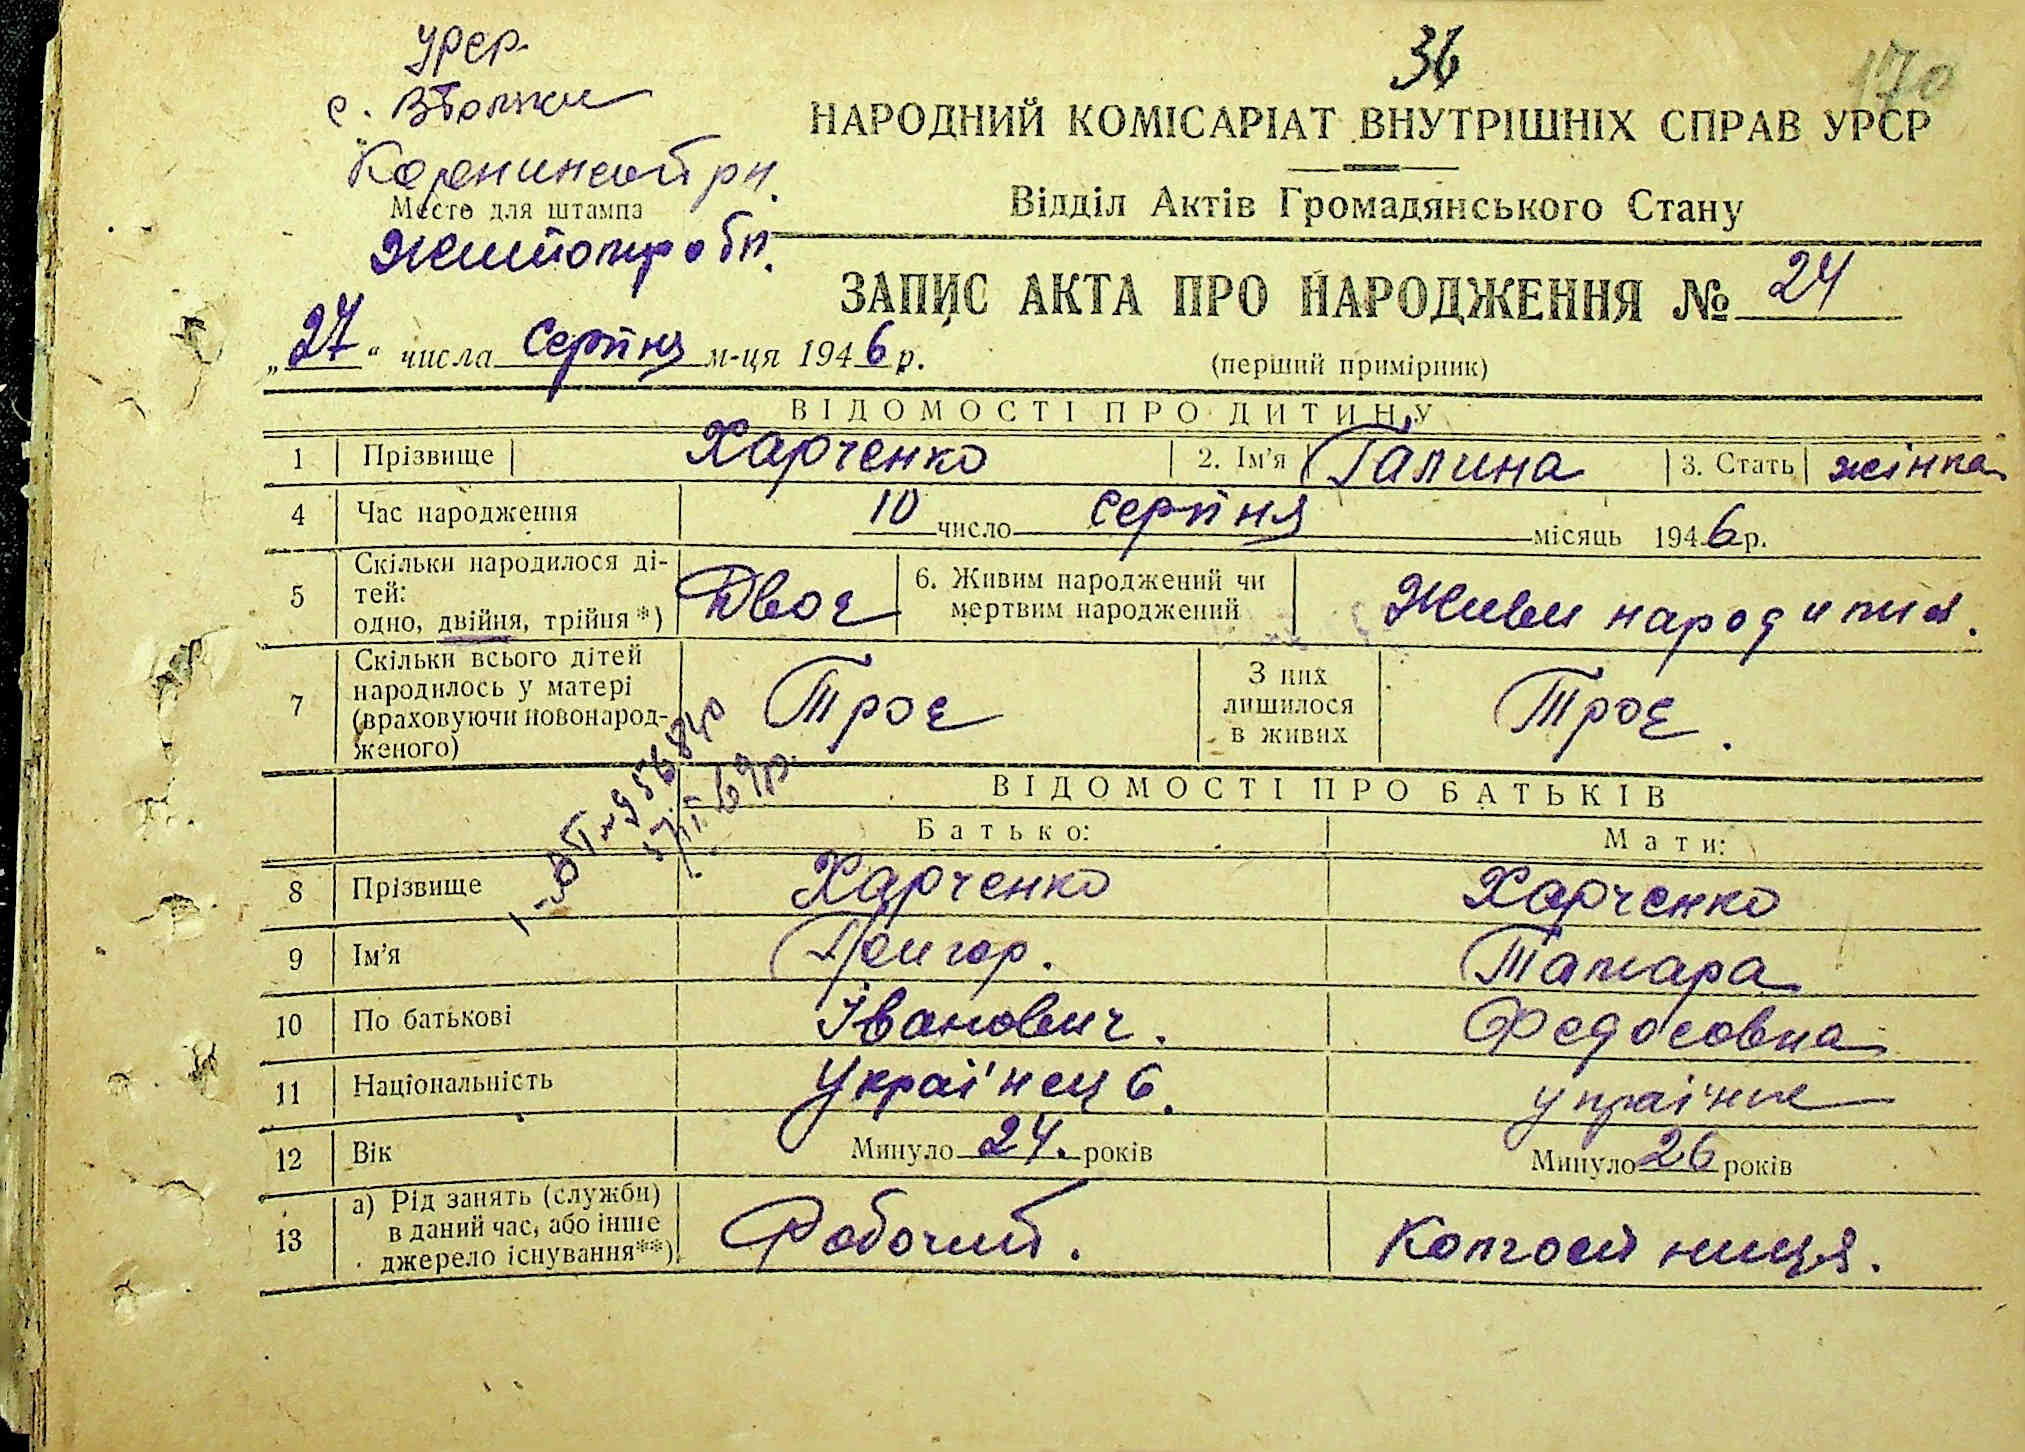 УРСР
36
170
НАРОДНИЙ КОМІСАРІАТ ВНУТРІШНІХ СПРАВ УРСР
Відділ Актів Громадянського Стану
Место для штампа
Житомир обл.
ЗАПИС АКТА ПРО НАРОДЖЕННЯ № 24
„27“ числа Серпня м-ця 1946 р.
(перший примірник)
ВІДОМОСТІ ПРО ДИТИНУ
1 Прізвище Харченко 2. Ім'я Галина 3. Стать жінка
4 Час народження 10 число Серпня місяць 1946 р.
5 Скільки народилося ді-
тей:
одно, двійня, трійня *) Двоє 6. Живим народжений чи
мертвим народжений Живи народилися.
7 Скільки всього дітей
народилось у матері
(враховуючи новонарод-
женого) Троє З них
лишилося
в живих Троє.
ВІДОМОСТІ ПРО БАТЬКІВ
Батько: Мати:
8 Прізвище Харченко Харченко
9 Ім'я Тамара
10 По батькові Іванович. Федосовна
11 Національність Українець. українка
12 Вік Минуло 24. років Минуло 26 років
13 а) Рід занять (служби)
в даний час, або інше
джерело існування**) Робочий. Колгоспниця.